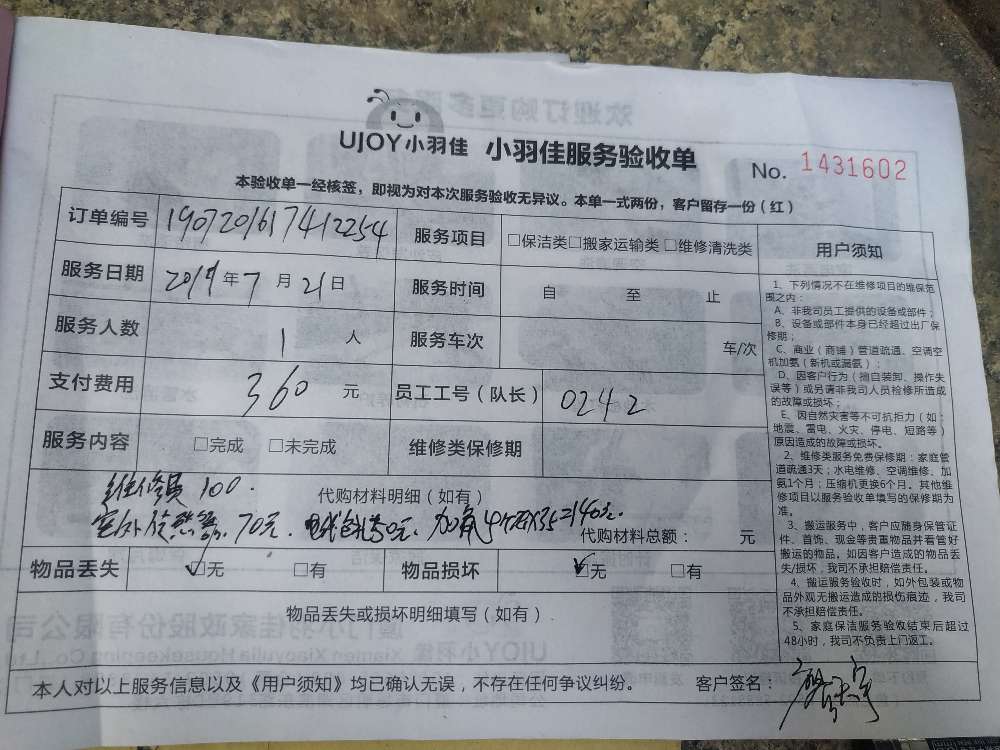 UJOY小羽佳 小羽佳服务验收单 No. 1431602
本验收单一经核签，即视为对本次服务验收无异议。本单一式两份，客户留存一份（红）
订单编号 190720161741 2254 服务项目 □保洁类□搬家运输类□维修清洗类
服务日期 2019年7月21日 服务时间 自 至 止
服务人数 1 人 服务车次 车/次
支付费用 360 元 员工工号（队长） 0242
服务内容 □完成 □未完成 维修类保修期
维修费 100.
代购材料明细（如有）
室外 70元. 加氟 4 35=140元.
代购材料总额： 元
物品丢失 ☑无 □有 物品损坏 ☑无 □有
物品丢失或损坏明细填写（如有）
本人对以上服务信息以及《用户须知》均已确认无误，不存在任何争议纠纷。 客户签名：
用户须知
1、下列情况不在维修项目的维保范
围之内：
A、非我司员工提供的设备或部件；
B、设备或部件本身已经超过出厂保
修期；
C、商业（商铺）管道疏通、空调空
机加氨（新机或漏氨）；
D、因客户行为（擅自装卸、操作失
误等）或另请非我司人员检修所造成
的故障或损坏；
E、因自然灾害等不可抗拒力（如：
地震、雷电、火灾、停电、短路等）
原因造成的故障或损坏。
2、维修类服务免费保修期：家庭管
道疏通3天；水电维修、空调维修、加
氨1个月；压缩机更换6个月。其他维
修项目以服务验收单填写的保修期为
准。
3、搬运服务中，客户应随身保管证
件、首饰、现金等贵重物品并看管好
搬运的物品，如因客户造成的物品丢
失/损坏，我司不承担赔偿责任。
4、搬运服务验收时，如外包装或物
品外观无搬运造成的损伤痕迹，我司
不承担赔偿责任。
5、家庭保洁服务验收结束后超过
48小时，我司不负责上门返工。